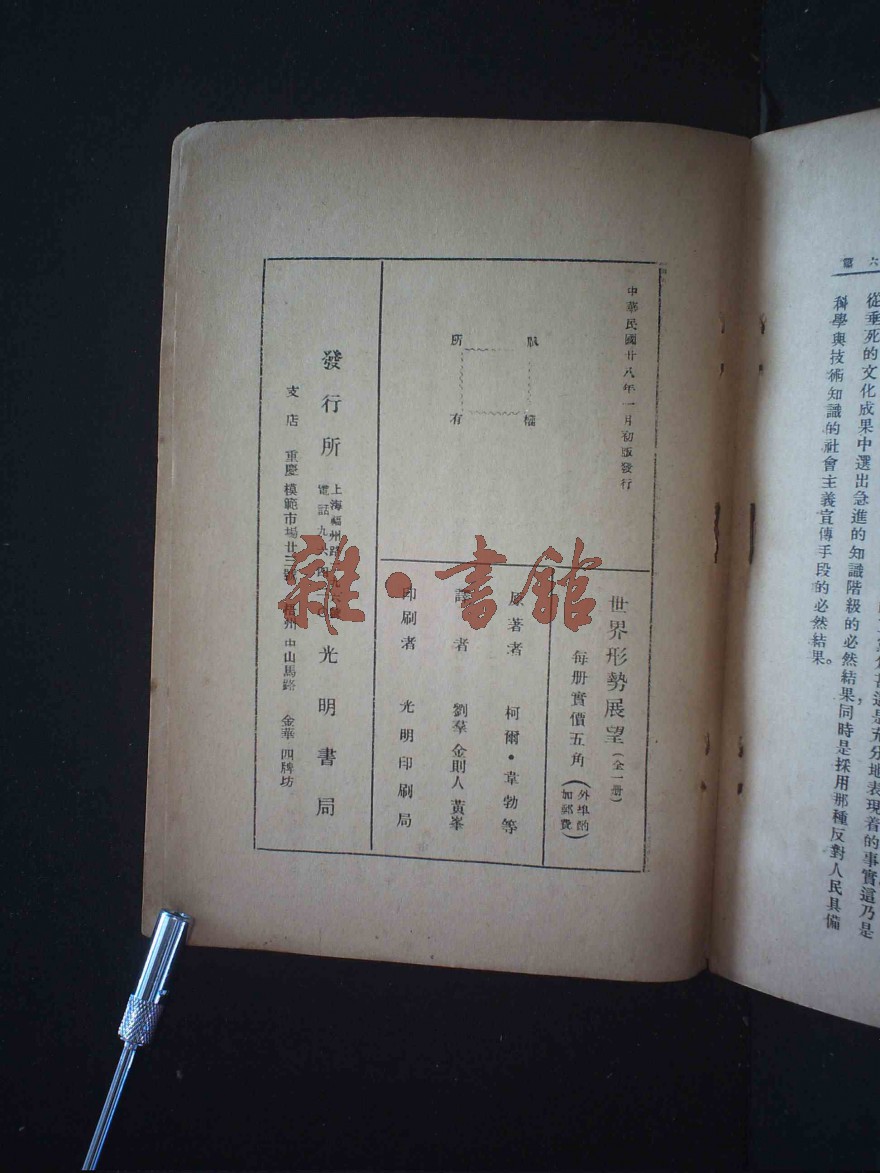 中華民國廿八年一月初版發行
版權
所有
世界形勢展望(全一册)
每册實價五角(外埠酌加郵費)
原著者 柯爾·韋勃等
譯者 劉羣 金則人 黃峯
印刷者 光明印刷局
發行所 光明書局
上海福州路
電話九六四
支店 重慶 模範市場廿三號 梧州 中山馬路 金華 四牌坊
雜·書館
第六
從垂死的文化成果中選出急進的知識階級的必然結果,同時是採用那種反對人民具備
科學與技術知識的社會主義宣傳手段的必然結果。
充分地表現着的事實這乃是